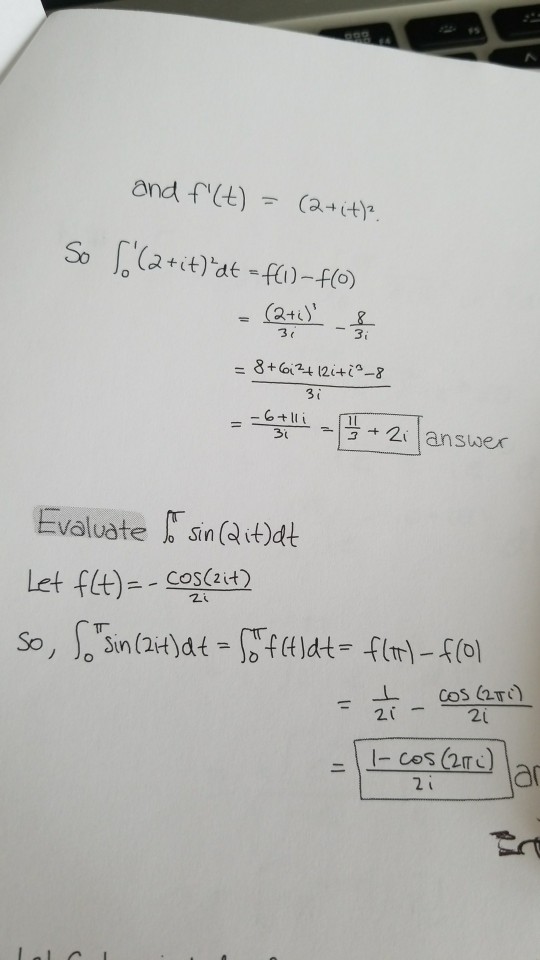 and f'(t) = (2+it)².
So ∫₀¹(2+it)²dt = f(1)-f(0)
= (2+i)³/3i - 8/3i
= 8+6i²+12i+i³-8/3i
= -6+11i/3i = 11/3 + 2i answer
Evaluate ∫₀^π sin(2it)dt
Let f(t) = - cos(2it)/2i
So, ∫₀^π sin(2it)dt = ∫₀^π f(t)dt = f(π)-f(0)
= 1/2i - cos(2πi)/2i
= 1-cos(2πi)/2i
F4
F5